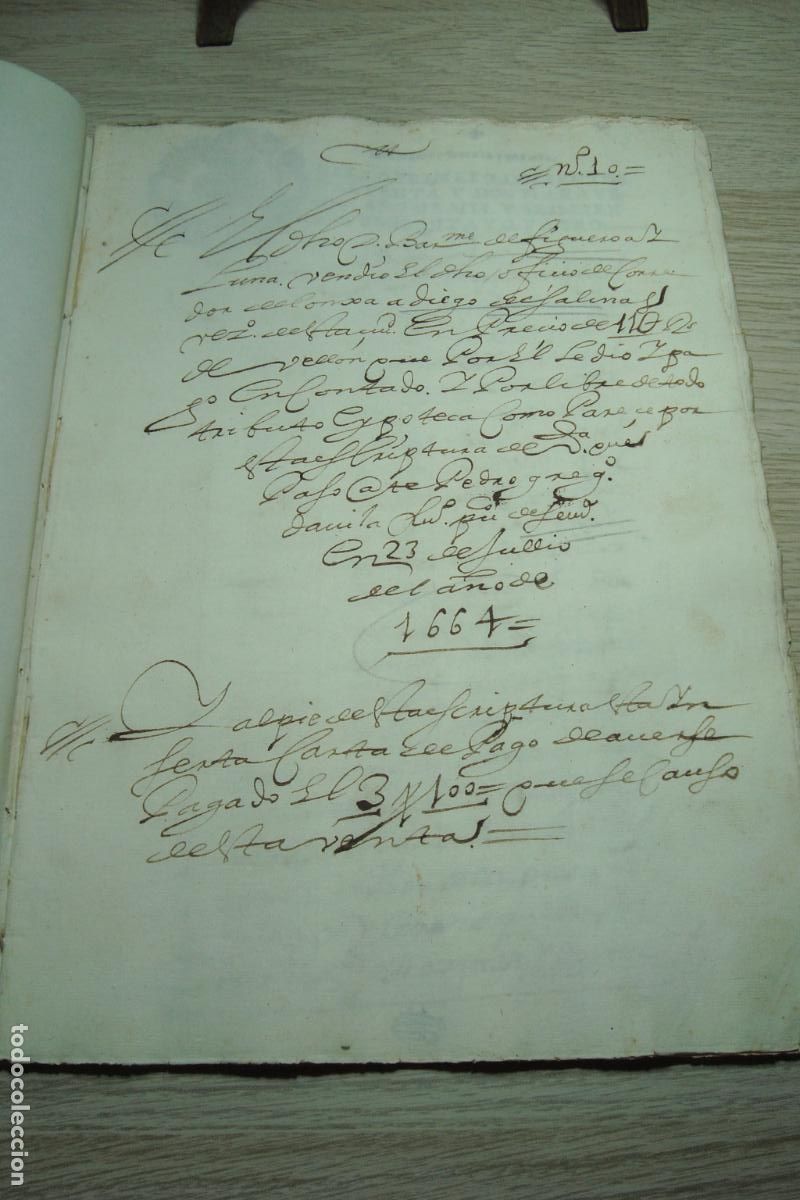 nº. 10.=
El dho D. Barme. de figueroa Y
Luna. vendio El dho officio de Corre
dor de lonxa a diego de Salinas
vezº. desta ciud. En Precio de 110 Rs
de vellon que Por El le dio Y pa
go En Contado. Y Por libre de todo
tributo Eypoteca Como Parece por
esta escriptura de Da. que
Paso ante Pedro gregº.
davila Esno. puco de Seuª.
En 23 de Jullio
del año de
1664=
Y al pie desta escriptura esta Yn
serta Carta de Pago de averse
Pagado El 3 y 100= que se Causo
desta venta.=
todocoleccion